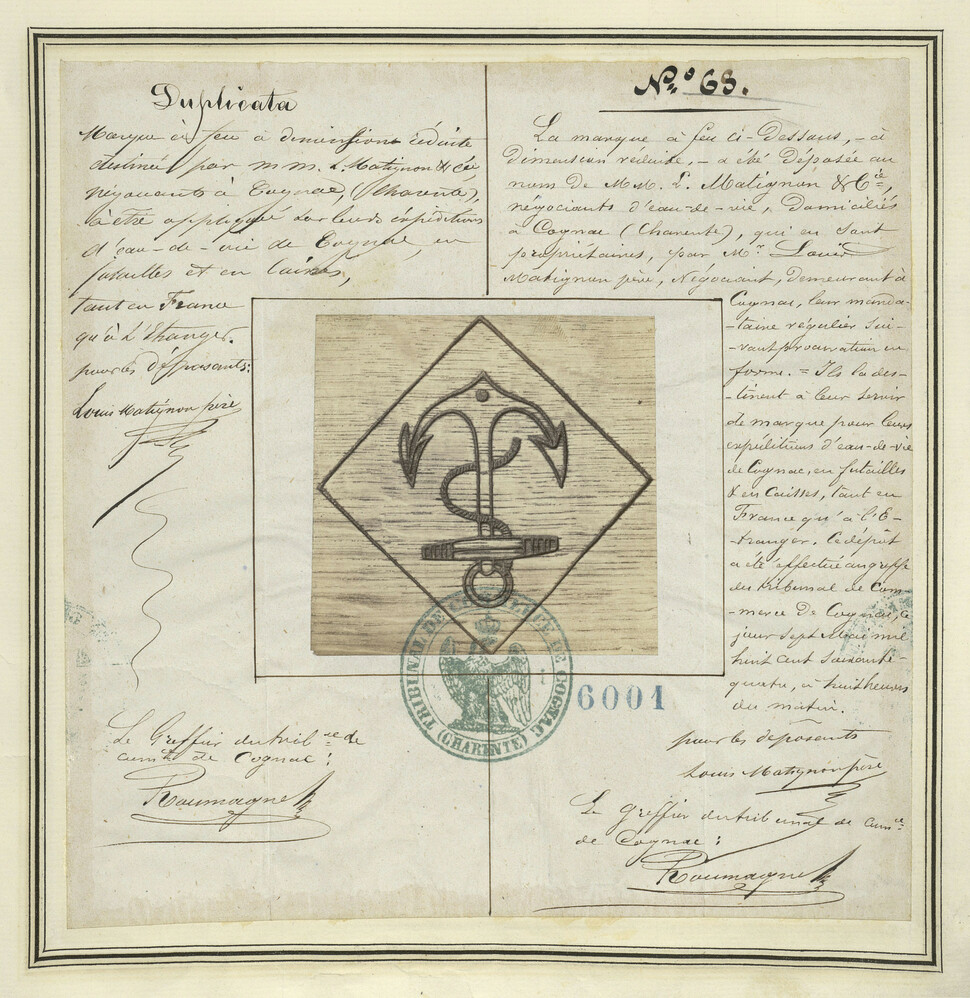 Duplicata
Marque à feu à dimension réduite
destinée par MM. L. Matignon & Cie
négociants à Cognac, (Charente),
à être appliquée sur leurs expéditions
d'eau-de-vie de Cognac, en
futailles et en caisses,
tant en France
qu'à l'Etranger.
pour les déposants:
Louis Matignon père
Le Greffier du trib.al de
com.ce de Cognac:
Roumagne
N.o 68.
La marque à feu ci-Dessous, - à
Dimension réduite, - a été Déposée au
nom de MM. L. Matignon & C.ie,
négociants d'eau-de-vie, Domiciliés
à Cognac (Charente), qui en sont
propriétaires, par M.r Louis
Matignon père, Négociant, demeurant à
Cognac, leur manda-
-taire régulier sui-
-vant procuration en
forme. = Ils la des-
-tinent à leur servir
de marque pour leurs
expéditions d'eau-de-vie
de Cognac, en futailles
& en Caisses, tant en
France qu'à l'E-
-tranger. Ce dépôt
a été effectué au greffe
du tribunal de Com-
-merce de Cognac, ce
jour sept Mai mil
huit cent soixante-
quatre, à huit heures
du matin.
pour les déposants
Louis Matignon père
Le Greffier du tribunal de com.ce
de Cognac:
Roumagne
TRIBUNAL DE COM. DE LA VILLE DE COGNAC
(CHARENTE)
6001